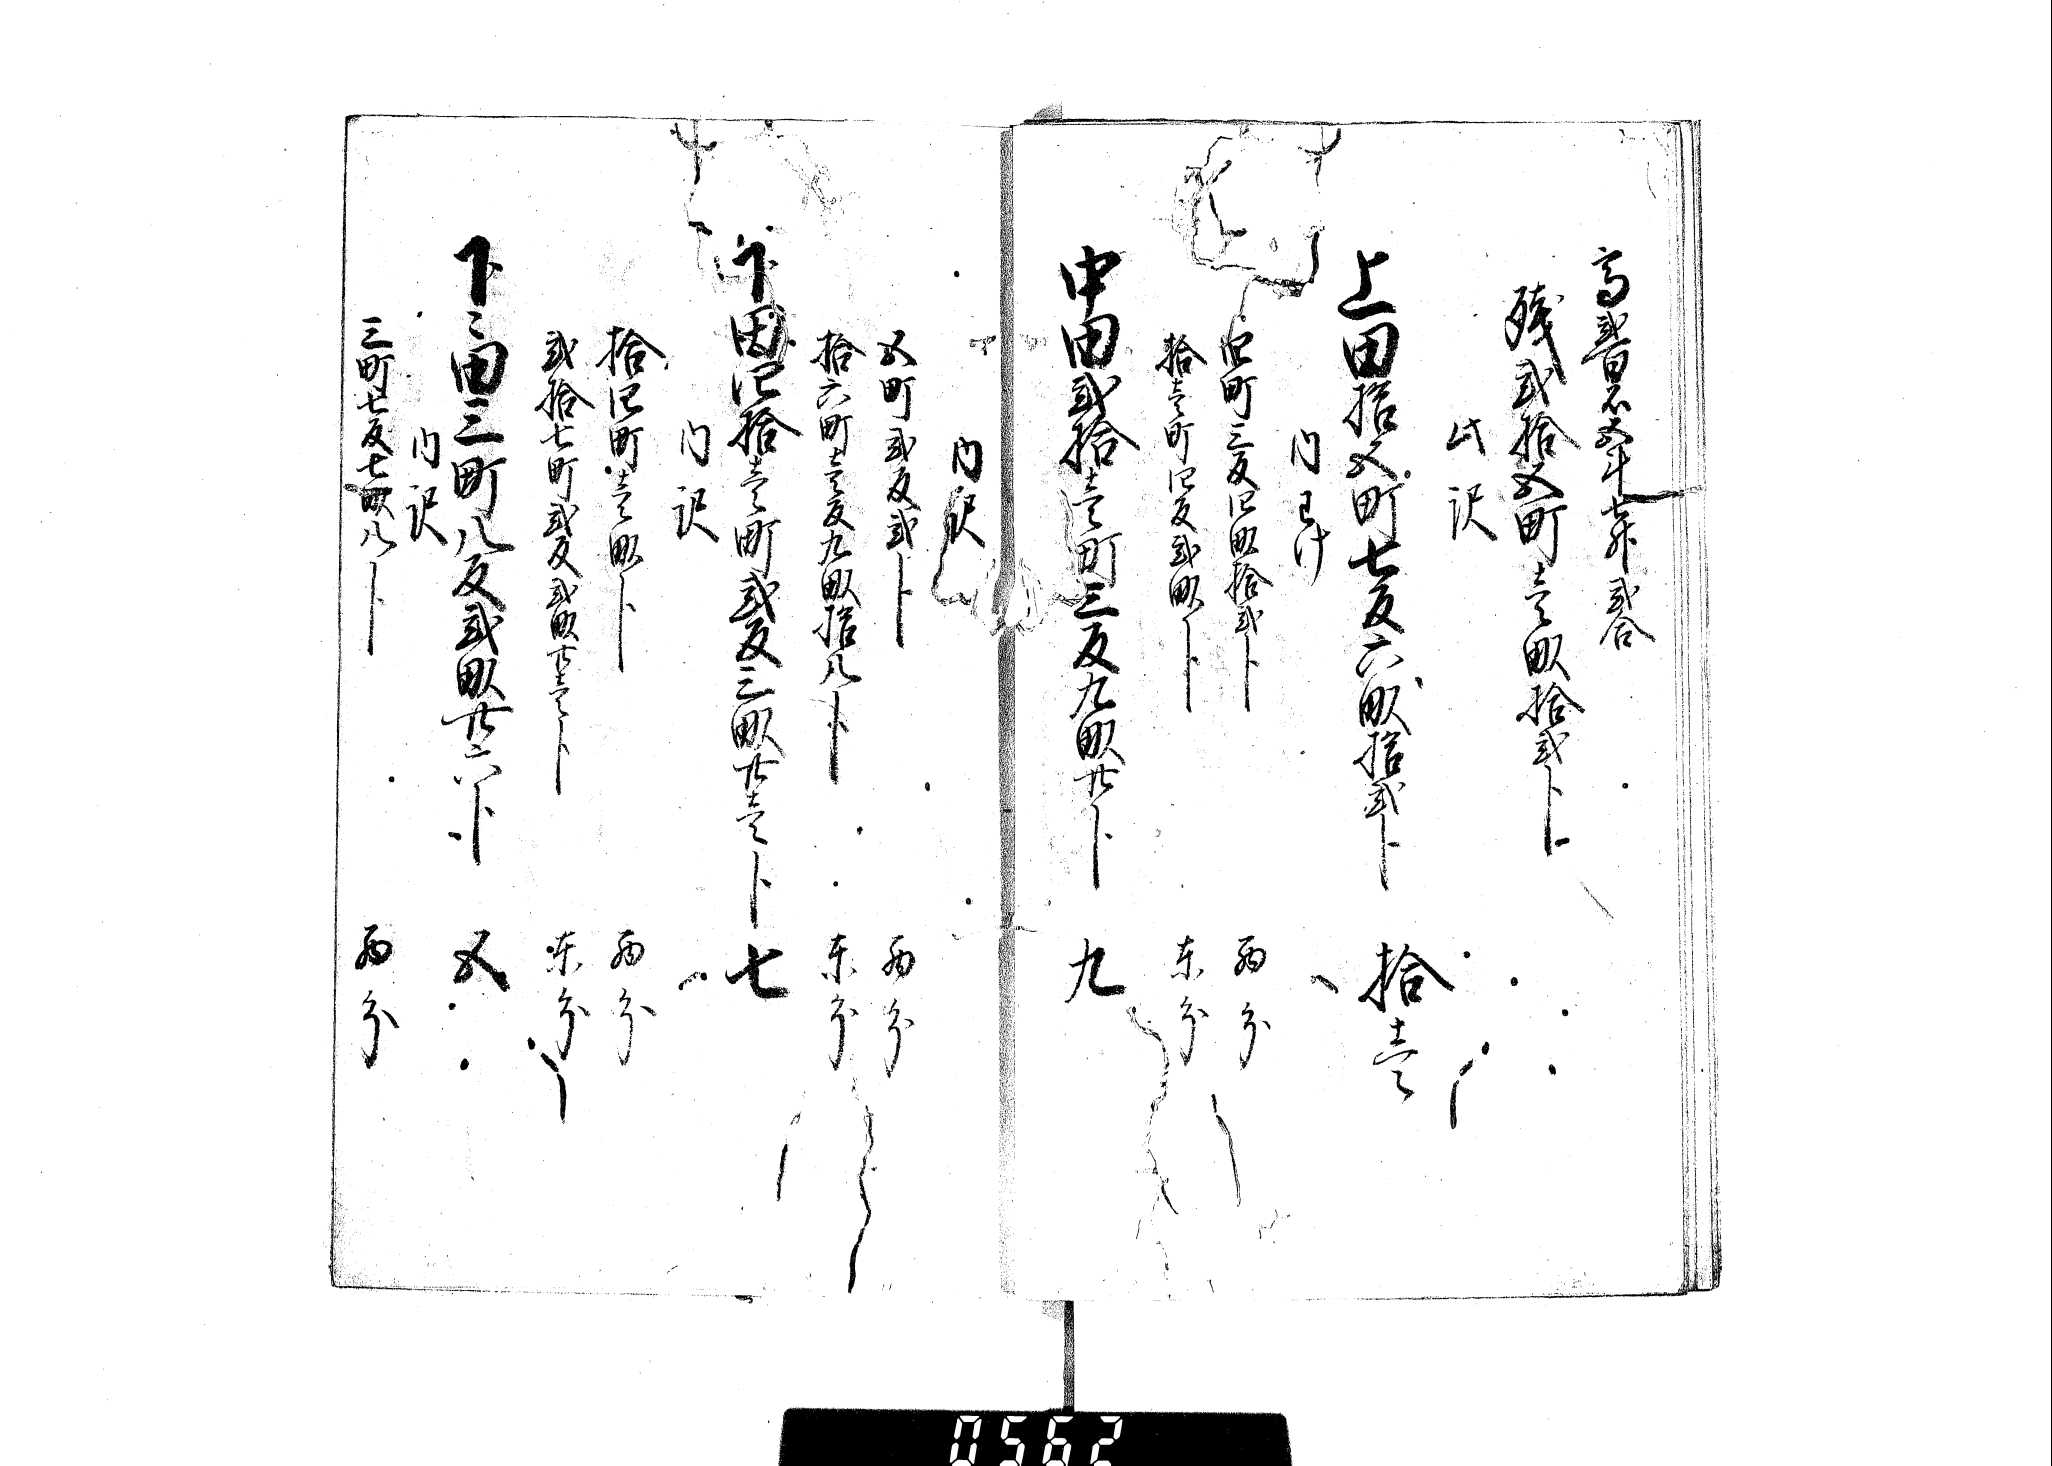 高弐百石五斗七升弐合
残弐拾五町壱畝拾弐卜
此沢
上田拾五町七反六畝拾弐卜 拾壱
内わけ
四町三反四畝拾弐卜 西分
拾壱町四反弐畝卜 东分
中田弐拾壱町三反九畝廿卜 九
内沢
五町弐反弐卜 西分
拾六町壱反九畝拾八卜 东分
下田四拾壱町弐反三畝廿壱卜 七
内沢
拾四町壱畝卜 西分
弐拾七町弐反弐畝廿壱卜 东分
下〻田三町八反弐畝廿六卜 五
内沢
三町七反七畝八卜 西分
0562